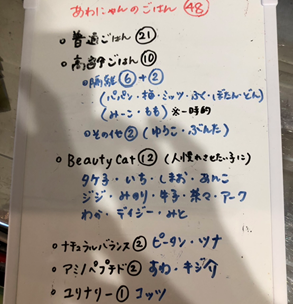 あわにゃんのごはん ㊽
○ 普通ごはん ㉑
○ 高留中ごはん ⑩
○ 隔離 ⑥ + ②
(パパン・梅・ミッツ・ふく・ぼたん・どん)
(みーこ・もも) ※一時的
○ その他 ② (ゆうこ・ぶんた)
○ Beauty Cat ⑫ (人慣れさせたい子に)
タケ子・いち・しまお・あんこ
ジジ・みのり・牛子・茶々・アーク
わか・デイジー・みと
○ ナチュラルバランス ② ピータン・ツナ
○ アミノペプチド ② すわ・キジ介
○ ユリナリー ① コッツ